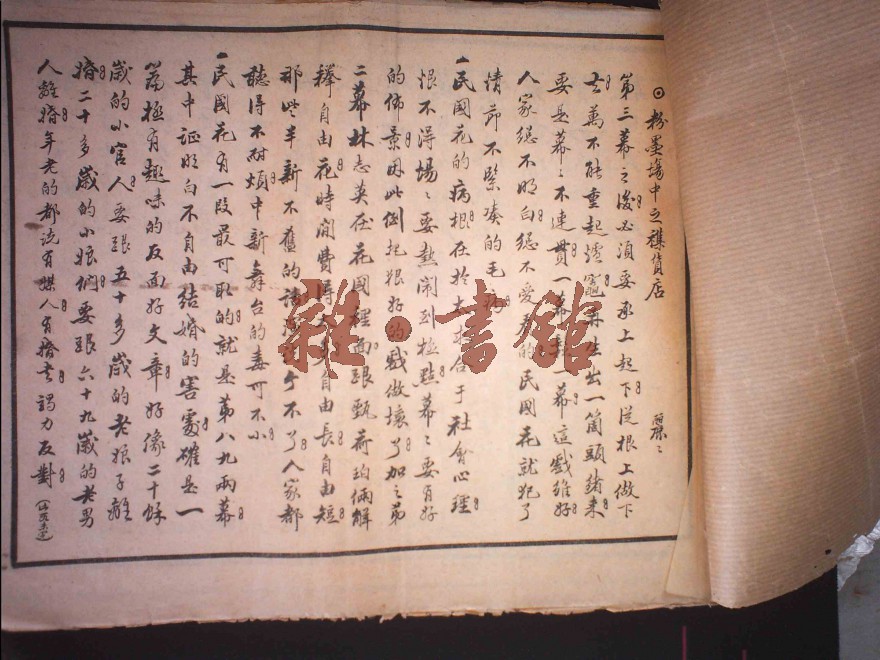 ⊙粉墨場中之雜貨店 𤸷〻
第三幕之後必須要承上起下從根上做下
去萬不能重起爐竈再生出一箇頭緒來
要是幕〻不連貫一幕 一幕這戲雖好
人家總不明白總不愛看的民國花就犯了
情節不緊湊的毛病
一民國花的病根在於太 合于社會心理
恨不得場〻要熱鬧到極點幕〻要有好
的佈景因此倒把狠好的戲做壞了加之第
二幕林志英在花國裡面跟甄荷珀倆解
釋自由花時間費得太 自由長自由短
那些半新不舊的 不了人家都
聽得不耐煩中新舞台的毒可不小
一民國花有一段最可取的就是第八九兩幕
其中証明白不自由結婚的害處確是一
篇極有趣味的反面好文章好像二十餘
歲的小官人要跟五十多歲的老娘子離
婚二十多歲的小娘們要跟六十九歲的老男
人離婚年老的都說有媒人有婚書竭力反對
雜·書館